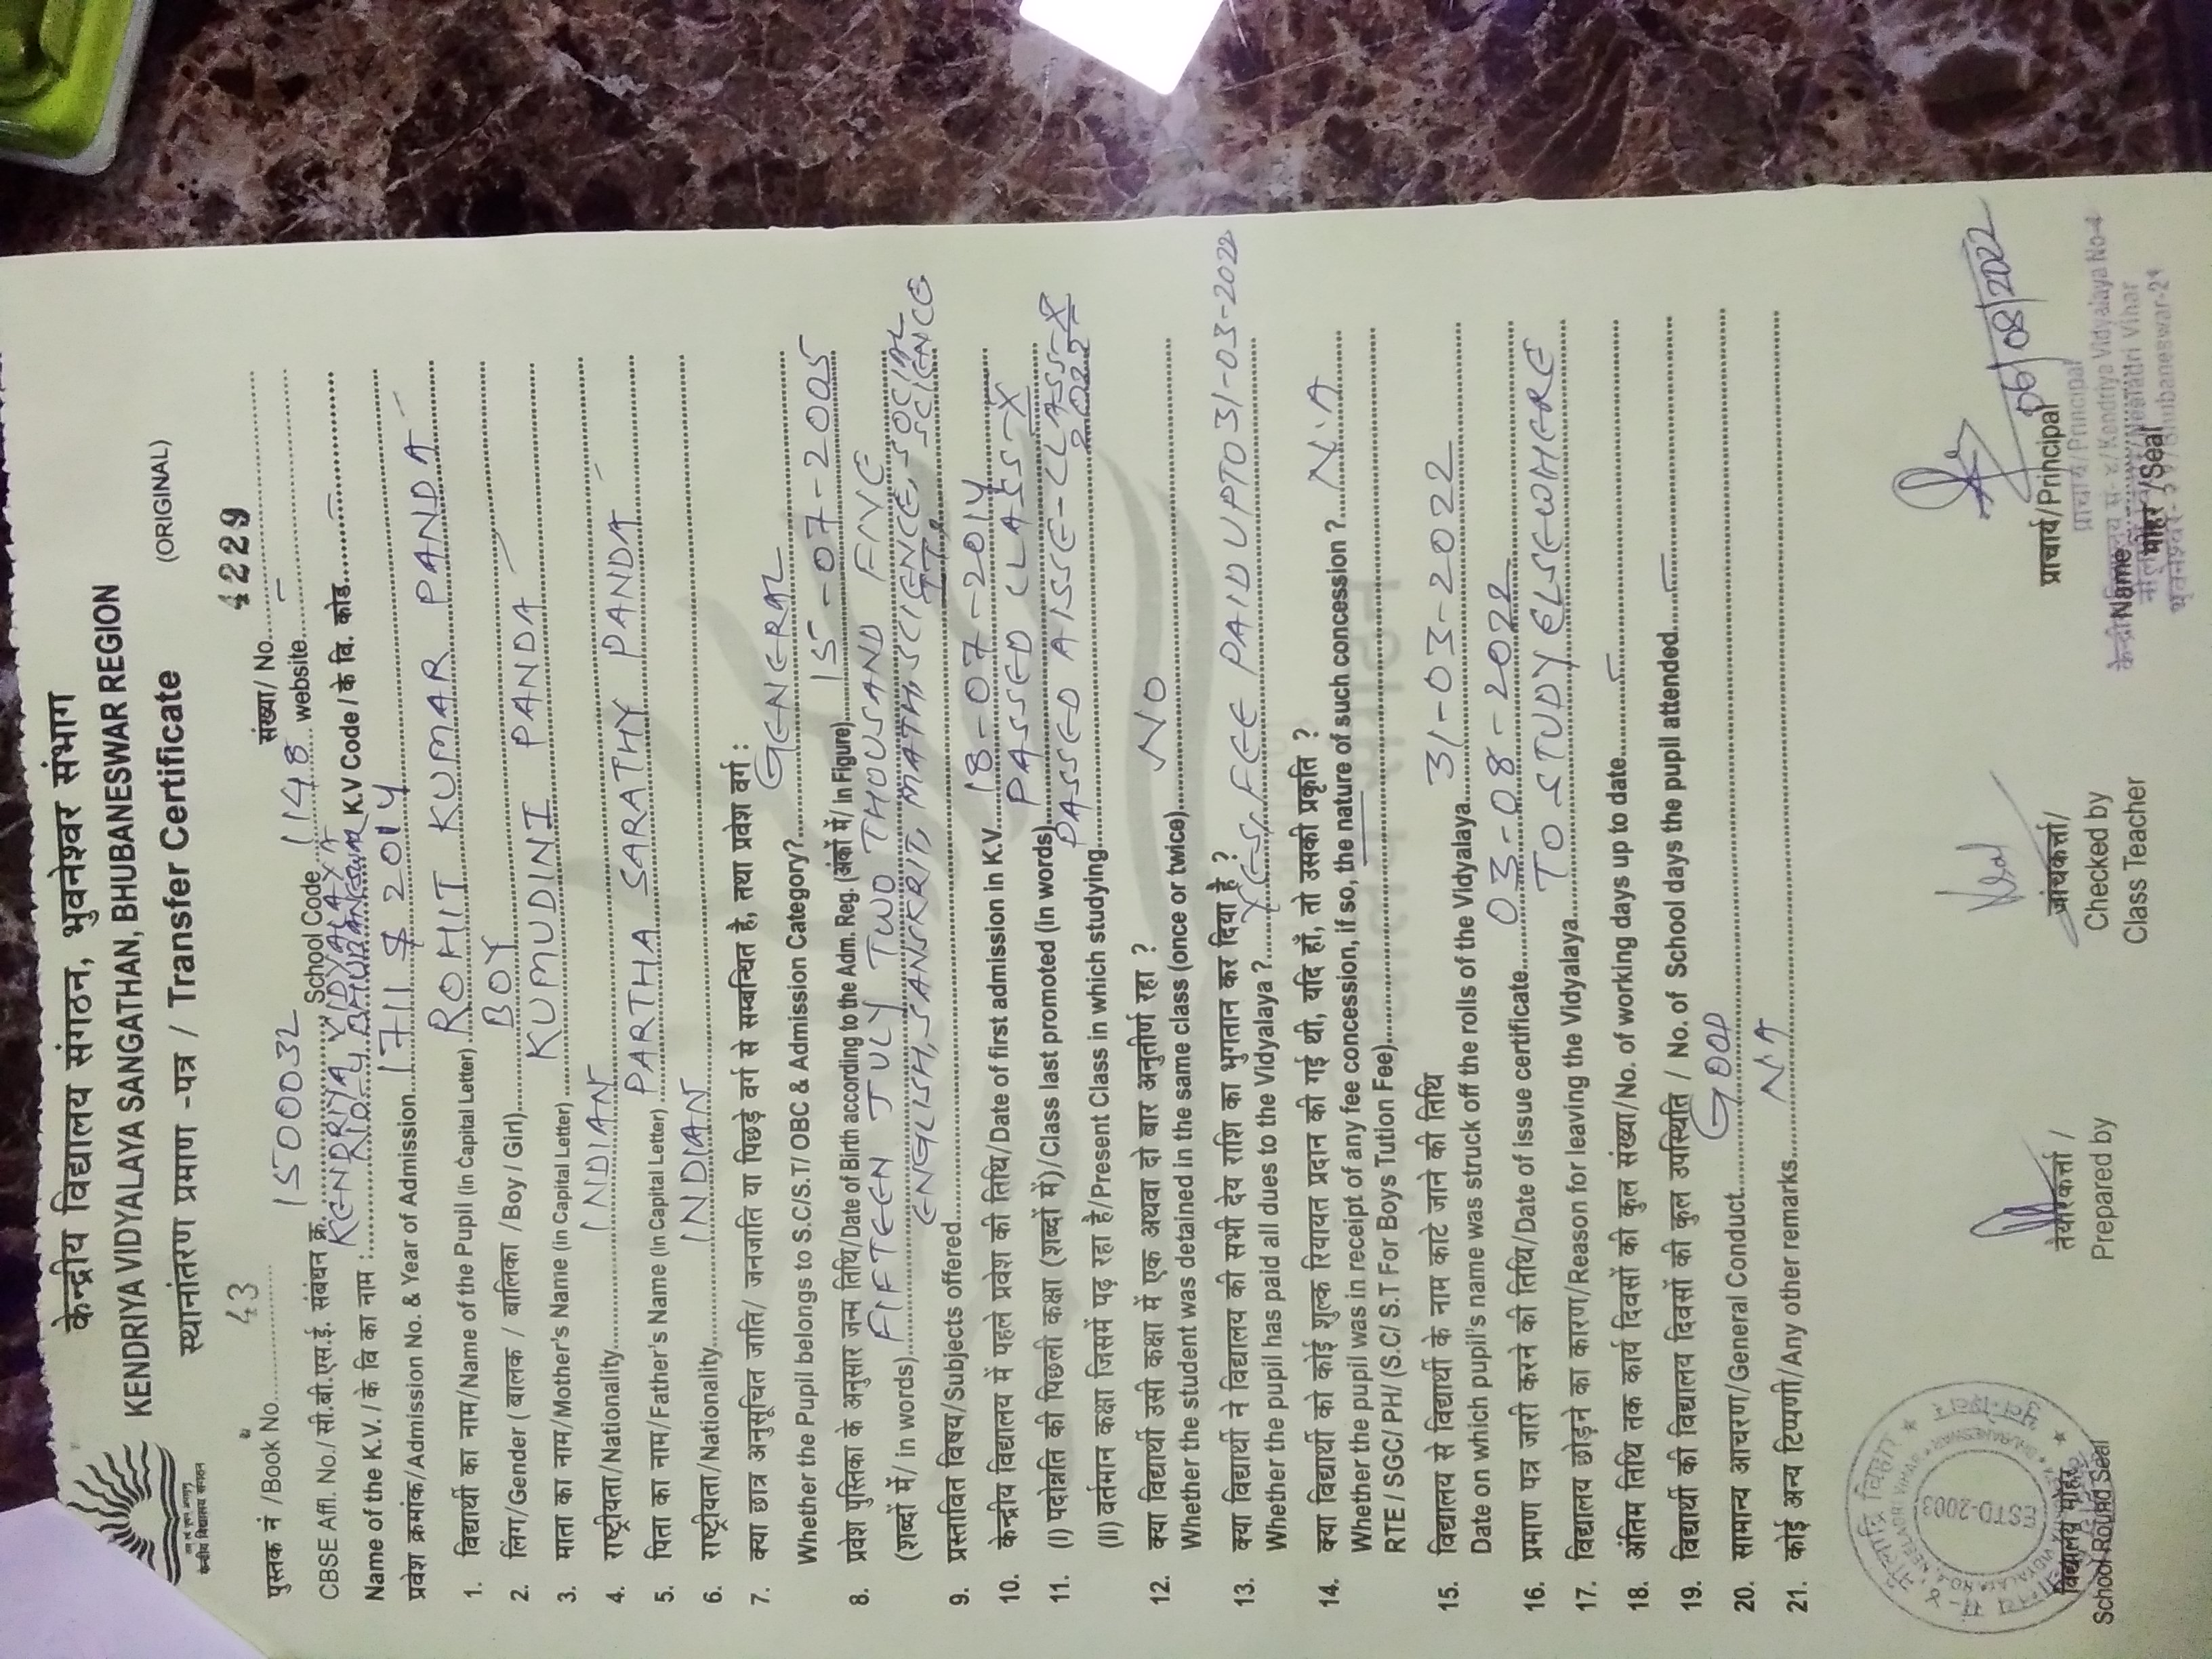 केन्द्रीय विद्यालय संगठन, भुवनेश्वर संभाग
KENDRIYA VIDYALAYA SANGATHAN, BHUBANESWAR REGION
स्थानांतरण प्रमाण -पत्र / Transfer Certificate
(ORIGINAL)
केन्द्रीय विद्यालय संगठन
पुस्तक नं /Book No. 43 संख्या/ No. 4229
CBSE Affl. No./ सी.बी.एस.ई. संबंधन क्र. 1500032 School Code 1148 website -
Name of the K.V. / के वि का नाम : KENDRIYA VIDYALAYA K.V Code / के वि. कोड -
प्रवेश क्रमांक/Admission No. & Year of Admission 2014
1. विद्यार्थी का नाम/Name of the Pupil (in Capital Letter) ROHIT KUMAR PANDA -
2. लिंग/Gender ( बालक / बालिका /Boy / Girl) BOY
3. माता का नाम/Mother's Name (in Capital Letter) KUMUDINI PANDA -
4. राष्ट्रीयता/Nationality INDIAN
5. पिता का नाम/Father's Name (in Capital Letter) PARTHA SARATHY PANDA -
6. राष्ट्रीयता/Nationality INDIAN
7. क्या छात्र अनुसूचित जाति/ जनजाति या पिछड़े वर्ग से सम्बन्धित है, तथा प्रवेश वर्ग :
Whether the Pupil belongs to S.C/S.T/ OBC & Admission Category? GENERAL
8. प्रवेश पुस्तिका के अनुसार जन्म तिथि/Date of Birth according to the Adm. Reg. (अंकों में/ in Figure) 15-07-2005
(शब्दों में/ in words) FIFTEEN JULY TWO THOUSAND FIVE
9. प्रस्तावित विषय/Subjects offered ENGLISH, SANSKRIT, MATH, SCIENCE, SOCIAL SCIENCE
10. केन्द्रीय विद्यालय में पहले प्रवेश की तिथि/Date of first admission in K.V. 18-07-2014
11. (I) पदोन्नति की पिछली कक्षा (शब्दों में)/Class last promoted (in words) PASSED CLASS-X
(II) वर्तमान कक्षा जिसमें पढ़ रहा है/Present Class in which studying PASSED AISSE-CLASS-X 2022
12. क्या विद्यार्थी उसी कक्षा में एक अथवा दो बार अनुतीर्ण रहा ?
Whether the student was detained in the same class (once or twice) NO
13. क्या विद्यार्थी ने विद्यालय की सभी देय राशि का भुगतान कर दिया है ?
Whether the pupil has paid all dues to the Vidyalaya ? YES, FEE PAID UPTO 31-03-2022
14. क्या विद्यार्थी को कोई शुल्क रियायत प्रदान की गई थी, यदि हाँ, तो उसकी प्रकृति ?
Whether the pupil was in receipt of any fee concession, if so, the nature of such concession ? N.A
RTE / SGC/ PH/ (S.C/ S.T For Boys Tution Fee)
15. विद्यालय से विद्यार्थी के नाम काटे जाने की तिथि
Date on which pupil's name was struck off the rolls of the Vidyalaya 31-03-2022
16. प्रमाण पत्र जारी करने की तिथि/Date of issue certificate 03-08-2022
17. विद्यालय छोड़ने का कारण/Reason for leaving the Vidyalaya TO STUDY ELSEWHERE
18. अंतिम तिथि तक कार्य दिवसों की कुल संख्या/No. of working days up to date -
19. विद्यार्थी की विद्यालय दिवसों की कुल उपस्थिति / No. of School days the pupil attended -
20. सामान्य आचरण/General Conduct GOOD
21. कोई अन्य टिप्पणी/Any other remarks NA
06/08/2022
तैयारकर्त्ता / जांचकर्त्ता/ प्राचार्य/Principal
Prepared by Checked by
Class Teacher
प्राचार्य/Principal
Name
मोहर /Seal
Kendriya Vidyalaya No-4
Neeladri Vihar
Bhubaneswar-21
ESTD-2003
विद्यालय मोहर
School Round Seal